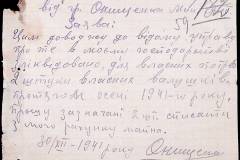 від гр. Онищенка
Заява
59
Цим доводжу до відома управу
про те в моєму господарстві
ліквідовано, для власних потреб
2 штуки власних валушків
протягом осені 1941-го року,
прошу зазначені 2 шт списати
з мого рахунку майна.
30/XII-1941 року Онищенко